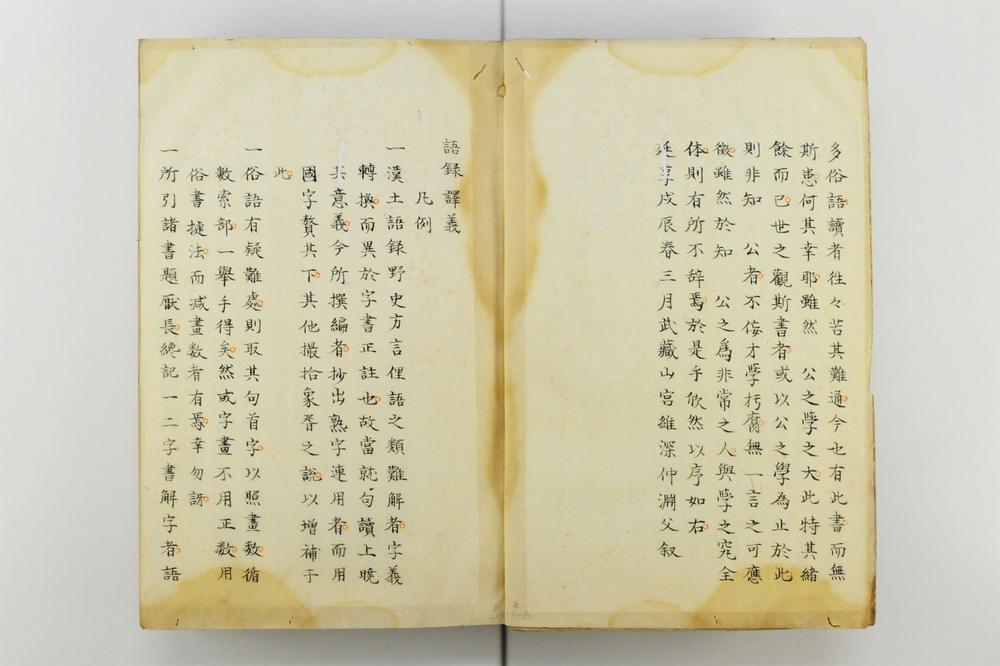 多俗語讀者往々苦其難通今也有此書而無
斯患何其幸耶雖然　公之學之大此特其緒
餘而已世之觀斯書者或以公之學為止於此
則非知　公者不侫才學朽腐無一言之可應
徵雖然於知　公之爲非常之人與學之究全
体則有所不辞焉於是乎欣然以序如右
延享戊辰春三月武藏山宮維深仲淵父叙
語録譯義
凡例
一漢土語録野史方言俚語之類難解者字義
轉換而異於字書正註也故當就句讀上曉
其意義今所撰編者抄出熟字連用者而用
國字贅其下其他撮拾衆胥之說以增補于
此
一俗語有疑難處則取其句首字以照畫數循
數索部一舉手得矣然或字畫不用正数用
俗書捷法而減畫数者有焉幸勿訝
一所引諸書題厥長總記一二字書解字者語